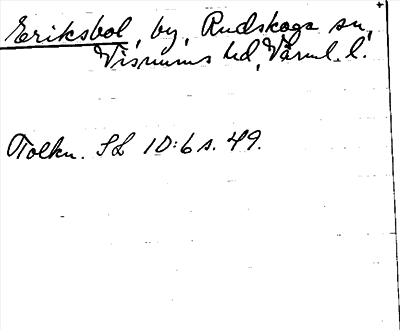 Eriksbol, by, Rudskoga sn,
Visnums hd, Värml. l.
Tolkn. SL 10:6 s. 49.